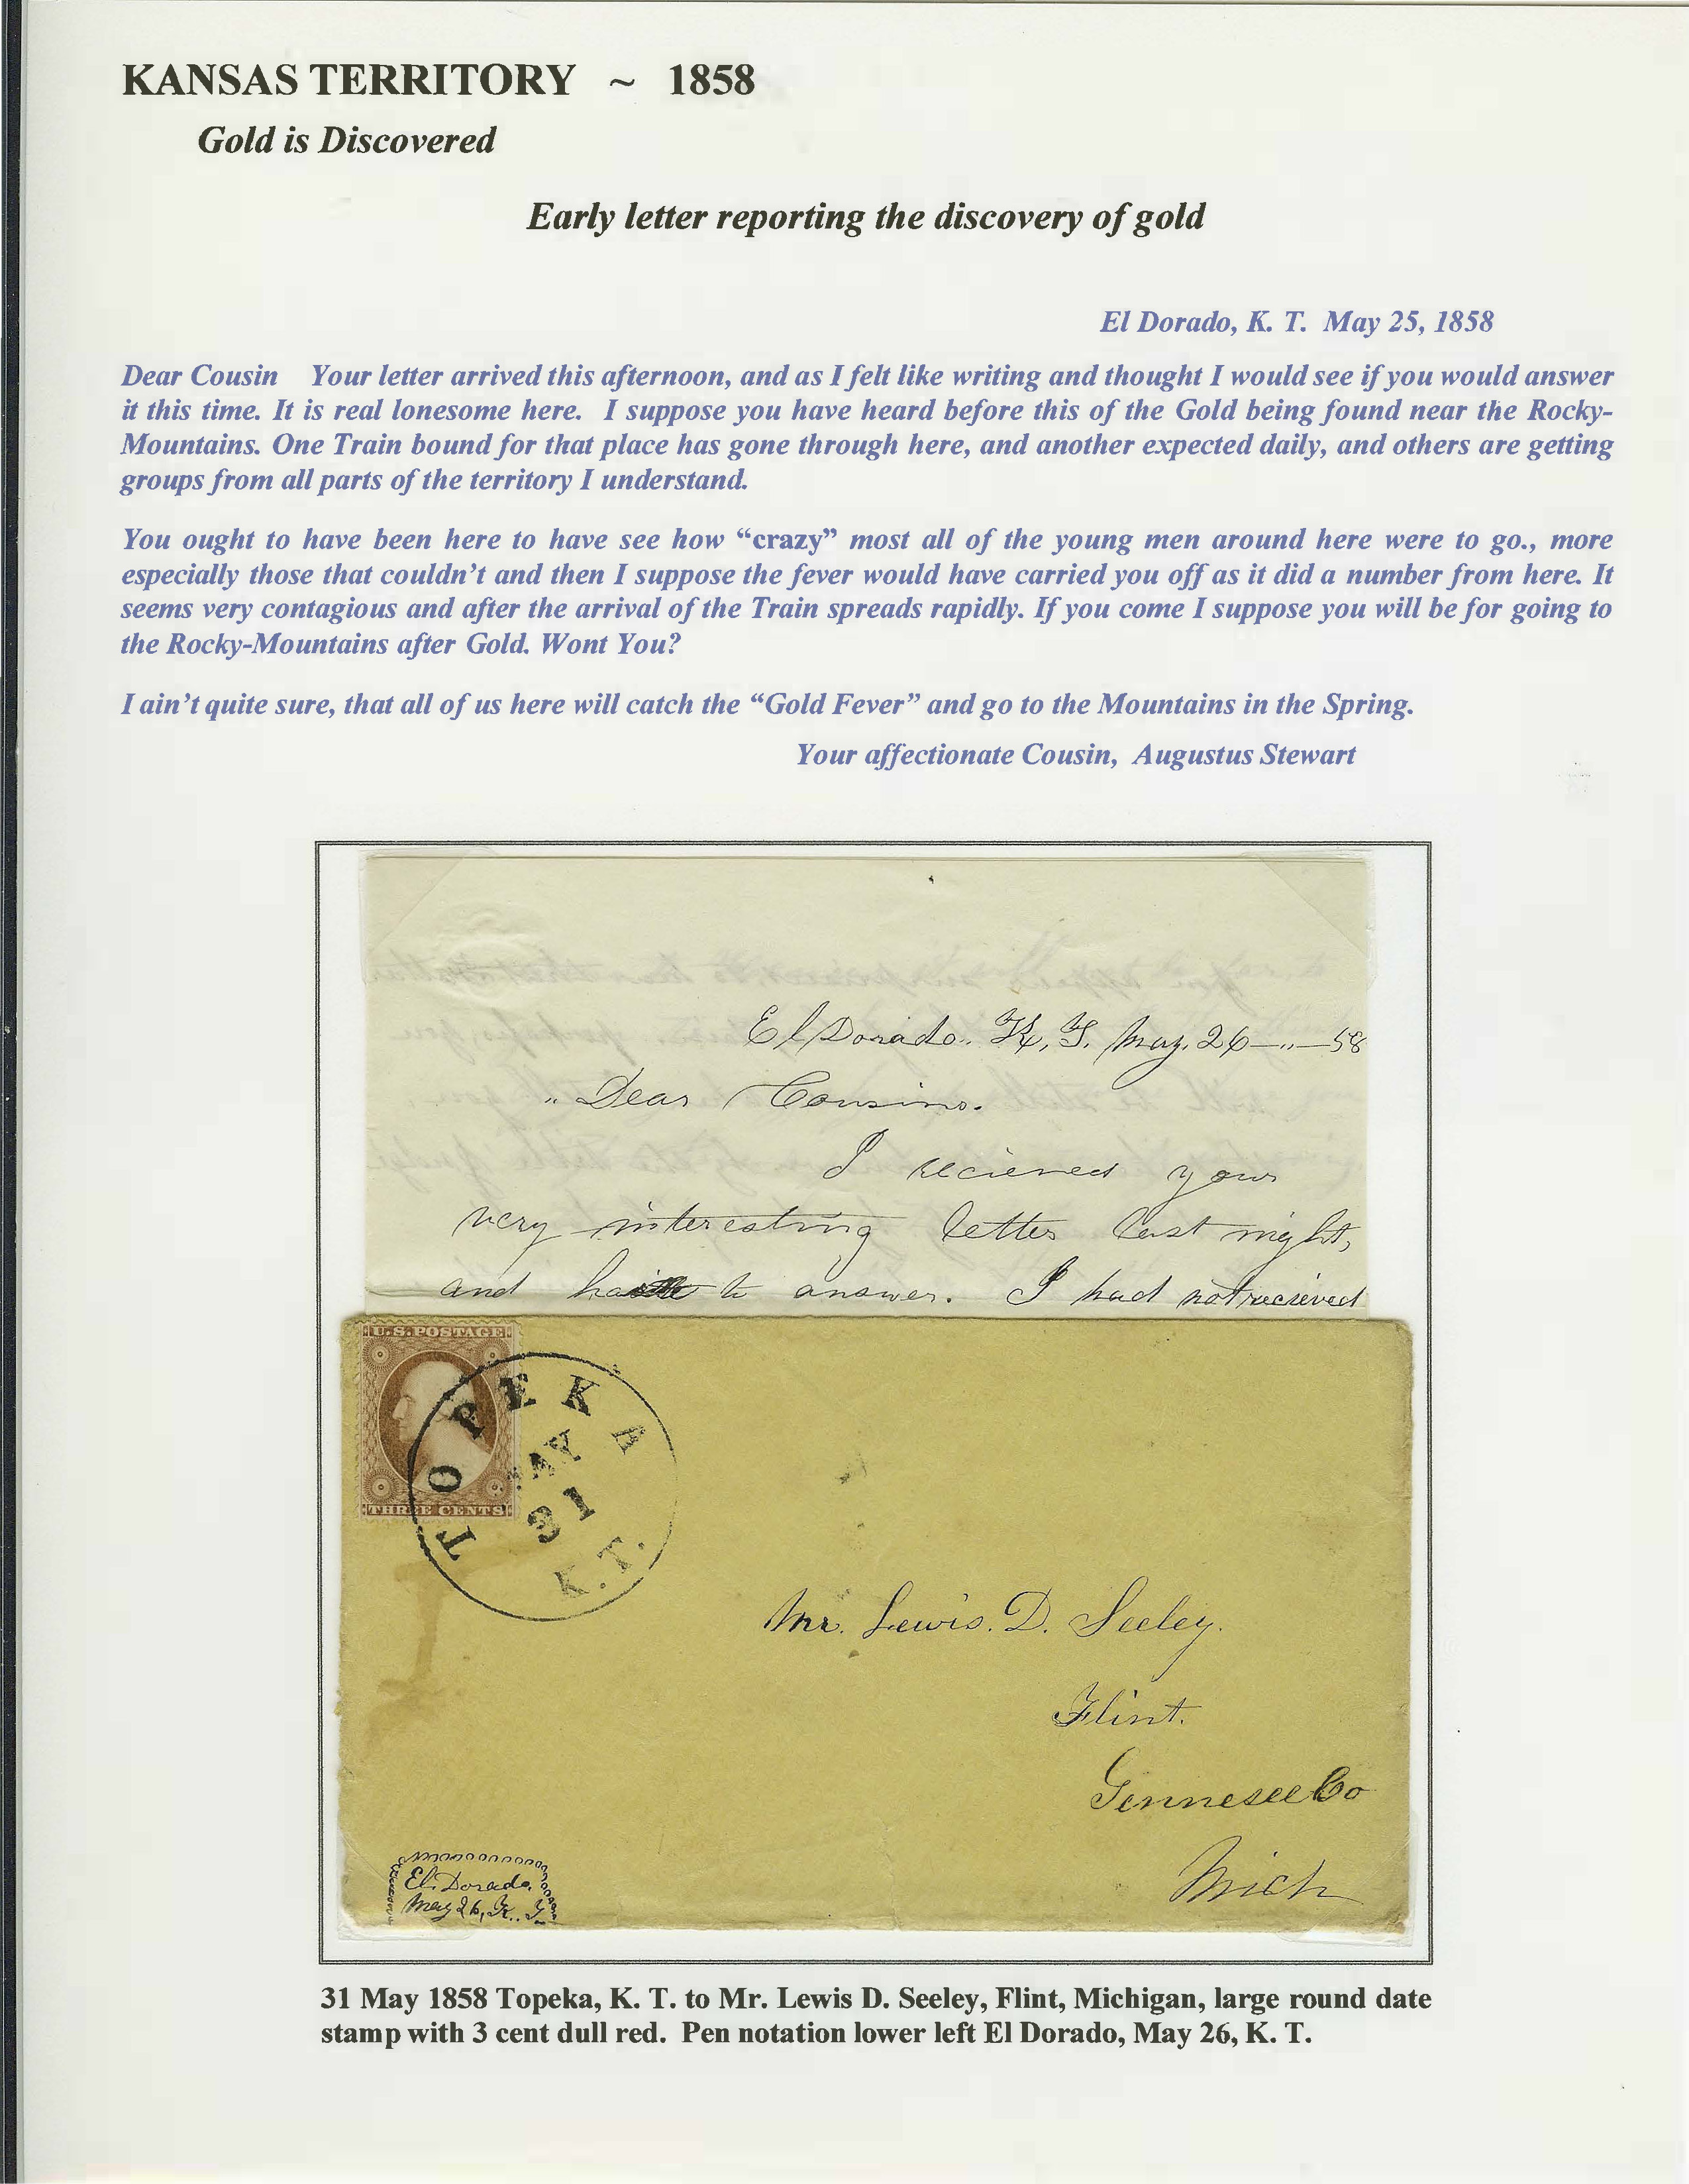 KANSAS TERRITORY ~ 1858
Gold is Discovered
Early letter reporting the discovery of gold
El Dorado, K. T. May 25, 1858
Dear Cousin Your letter arrived this afternoon, and as I felt like writing and thought I would see if you would answer
it this time. It is real lonesome here. I suppose you have heard before this of the Gold being found near the Rocky-
Mountains. One Train bound for that place has gone through here, and another expected daily, and others are getting
groups from all parts of the territory I understand.
You ought to have been here to have see how “crazy” most all of the young men around here were to go., more
especially those that couldn’t and then I suppose the fever would have carried you off as it did a number from here. It
seems very contagious and after the arrival of the Train spreads rapidly. If you come I suppose you will be for going to
the Rocky-Mountains after Gold. Wont You?
I ain’t quite sure, that all of us here will catch the “Gold Fever” and go to the Mountains in the Spring.
Your affectionate Cousin, Augustus Stewart
El Dorado. K. T. May. 26 —..— 58
.. Dear Cousins.
I recieved your
very interesting letter last night,
and to answer. I had not recieved
U.S. POSTAGE
THREE CENTS
TOPEKA
MAY
31
K.T.
Mr. Lewis. D. Seeley.
Flint.
Gennesee Co
Mich
El. Dorado.
May 26, K. T.
31 May 1858 Topeka, K. T. to Mr. Lewis D. Seeley, Flint, Michigan, large round date
stamp with 3 cent dull red. Pen notation lower left El Dorado, May 26, K. T.